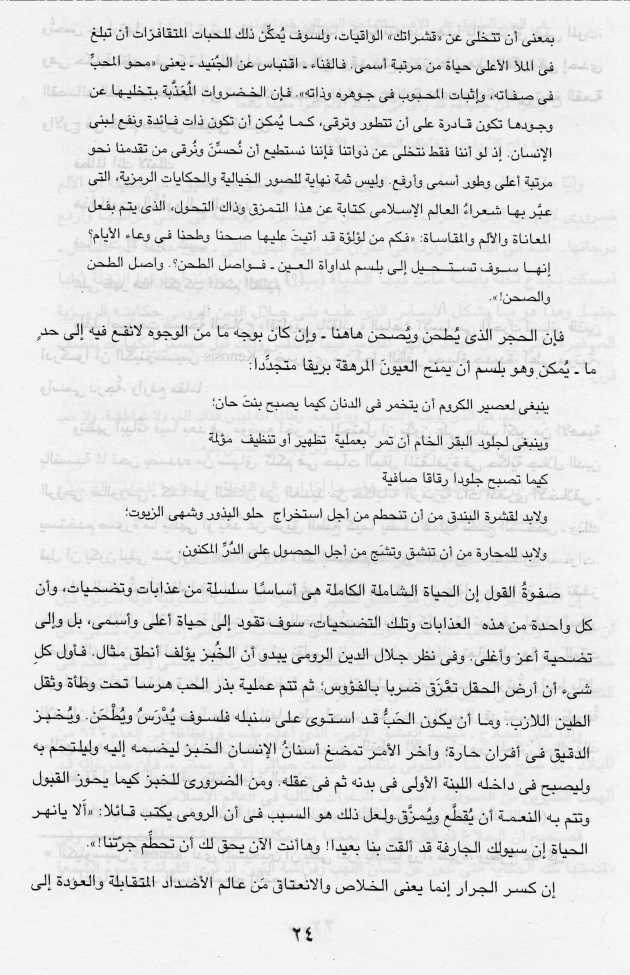 بمعنى أن تتخلى عن «قشراتك» الواقيات، ولسوف يُمكِّن ذلك للحبات المتقافزات أن تبلغ
فى الملأ الأعلى حياة من مرتبة أسمى. فالفناء ـ اقتباس عن الجُنيد ـ يعنى «محو المحبِّ
فى صفاته، وإثبات المحبوب فى جوهره وذاته». فإن الخضروات المُعذَّبة بتخليها عن
وجودها تكون قادرة على أن تتطور وترقى، كما يُمكن أن تكون ذات فائدة ونفع لبنى
الإنسان. إذ لو أننا فقط نتخلى عن ذواتنا فإننا نستطيع أن نُحسنَّ ونُرقى من تقدمنا نحو
مرتبة أعلى وطور أسمى وأرفع. وليس ثمة نهاية للصور الخيالية والحكايات الرمزية، التى
عبَّر بها شعراءُ العالم الإسلامى كتابة عن هذا التمزق وذاك التحول، الذى يتم بفعل
المعاناة والألم والمقاساة: «فكم من لؤلؤة قد أتيتَ عليها صحنا وطحنا فى وعاء الأيام؟
إنها سوف تستحيل إلى بلسم لمداواة العين ـ فواصل الطحن؟. واصل الطحن
والصحن!».
فإن الحجر الذى يُطحن ويُصحن هاهنا ـ وإن كان بوجه ما من الوجوه لانفع فيه إلى حدٍ
ما ـ يُمكن وهو بلسم أن يمنح العيونَ المرهقة بريقا متجدِّدا:
ينبغى لعصير الكروم أن يتخمر فى الدنان كيما يصبح بنتَ حان؛
وينبغى لجلود البقر الخام أن تمر بعملية تطهير أو تنظيف مؤلمة
كيما تصبح جلودا رقاقا صافية
ولابد لقشرة البندق من أن تنحطم من أجل استخراج حلو البذور وشهى الزيوت؛
ولابد للمحارة من أن تنشق وتشج من أجل الحصول على الدُرِّ المكنون.
صفوةُ القول إن الحياة الشاملة الكاملة هى أساسًا سلسلة من عذابات وتضحيات، وأن
كل واحدة من هذه العذابات وتلك التضحيات، سوف تقود إلى حياة أعلى وأسمى، بل وإلى
تضحية أعز وأغلى. وفى نظر جلال الدين الرومى يبدو أن الخُبز يؤلف أنطق مثال. فأول كلِ
شىء أن أرض الحقل تعْزَق ضربا بالفؤوس؛ ثم تتم عملية بذر الحب هرسا تحت وطأة وثقل
الطين اللازب. وما أن يكون الحَبُّ قد استوى على سنبله فلسوف يُدْرَسُ ويُطْحَن. ويُخبَز
الدقيق فى أفران حارة؛ وآخر الأمر تمضغ أسنانُ الإنسان الخبز ليضمه إليه وليلتحم به
وليصبح فى داخله اللبنة الأولى فى بدنه ثم فى عقله. ومن الضرورى للخبز كيما يحوز القبول
وتتم به النعمة أن يُقطَّع ويُمزَّق.ولعل ذلك هو السبب فى أن الرومى يكتب قائلا: «ألا يانهر
الحياة إن سيولك الجارفة قد ألقت بنا بعيدا! وهاأنت الآن يحق لك أن تحطِّم جرّتنا!».
إن كسر الجرار إنما يعنى الخلاص والانعتاق من عالم الأضداد المتقابلة والعودة إلى
٢٤